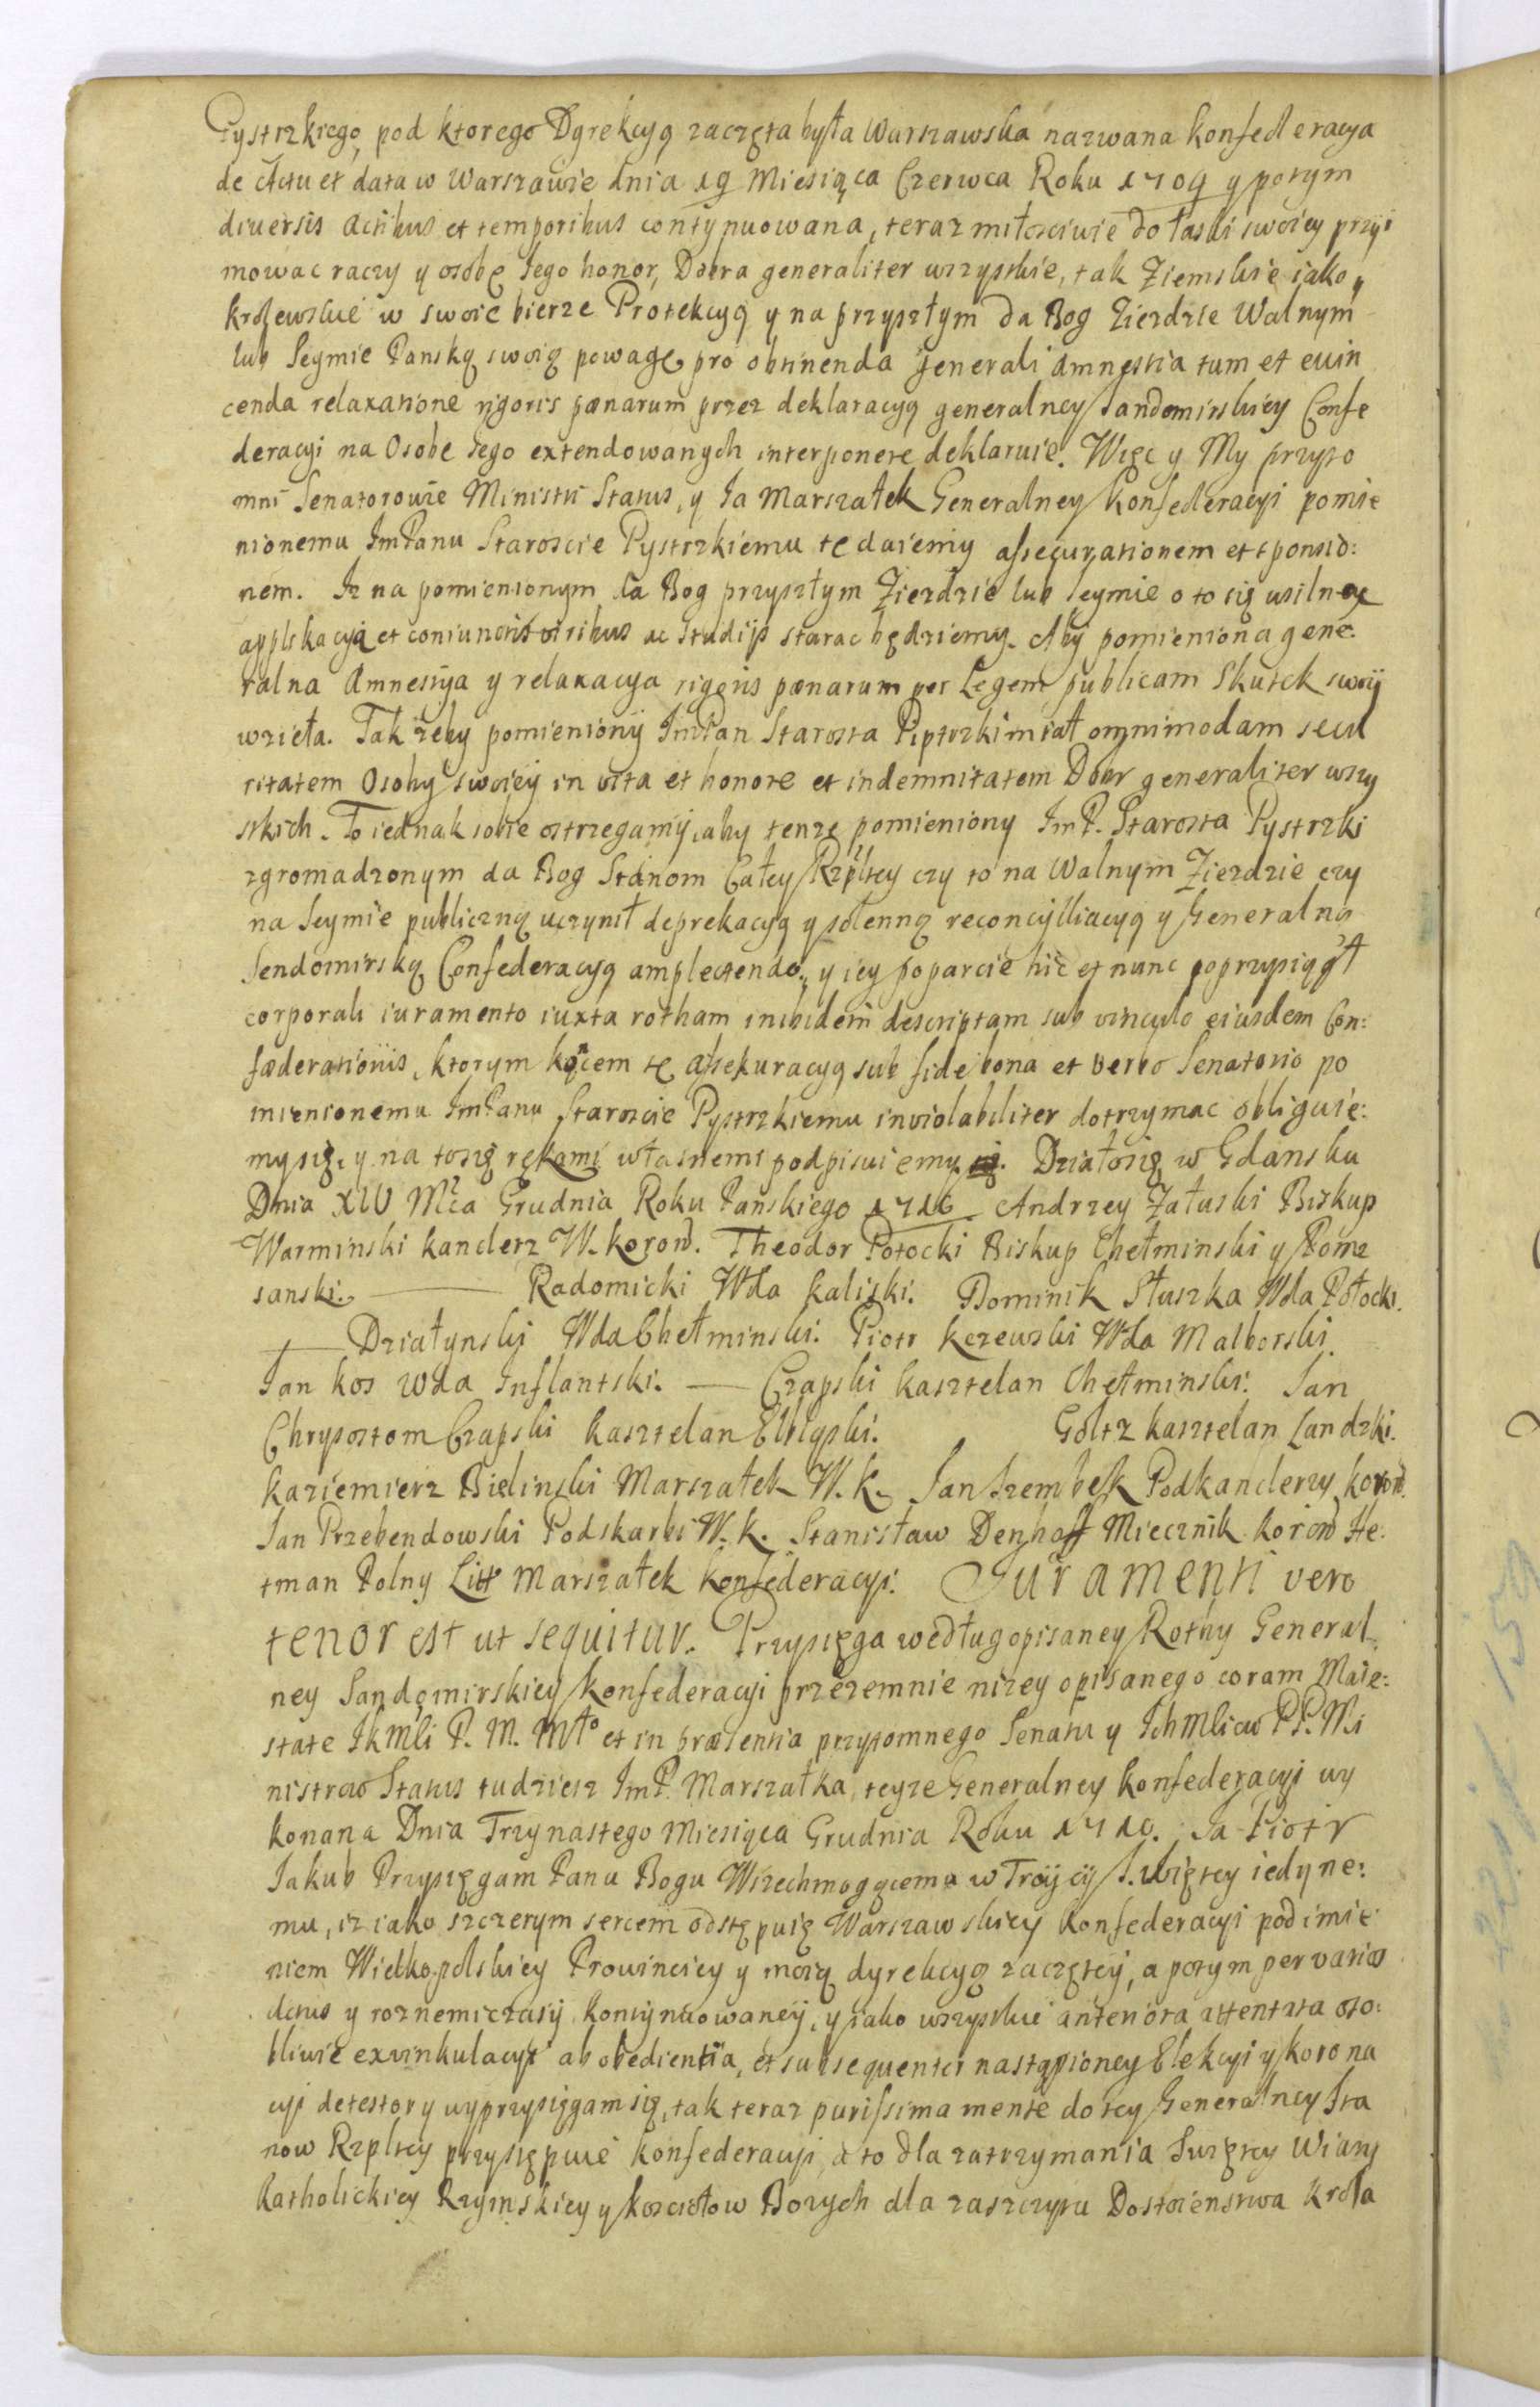 Pystrzkiego, pod ktorego Dyrekcyą zaczęta była Warszawska nazwana Konfederacya
de Actu et data w Warszawie dnia 19 Miesiąca Czerwca Roku 1709 y potym
diversis actibus et temporibus contynuowana, teraz miłosciwie do łaski swoiey przyi
mowac raczy y osobę Jego honor, Dobra generaliter wszystkie, tak Ziemskie iako y
krolewskie w swoie bierze Protekcyą y na przyszłym da Bog Zierdzie Walnym
lub Seymie Panską swoią powagę pro obtinenda generali amnestia tum et evin
cenda relaxatione rigoris pœnarum przez deklaracyą generalney Sandomirskiey Confe
deracyi na Osobe Jego extendowanych interponere deklaruie. Więc y My przyto
mni Senatorowie Ministri Status, y Ja Marszałek Generalney Konfederacyi pomie
nionemu ImPanu Staroscie Pystrzkiemu tę daiemy assecurationem et sponsio:
nem. Iz na pomienionym da Bog przyszłym Zierdzie lub Seymie o to się usilney
applikacyą et coniunctis viribus ac studijs starac będziemy. Aby pomieniona gene:
ralna Amnestya y relaxacya rigoris pœnarum per Legem publicam Skutek swoy
wzieła. Tak żeby pomieniony ImPan Starosta Piptrzki miał omnimodam secu
ritatem Osoby swoiey in vita et honore et indemnitatem Dobr generaliter wszy
stkich. To iednak sobie ostrzegamy, aby tenze pomieniony ImP. Starosta Pystrzki
zgromadzonym da Bog Stanom Całey Rzpltey czy to na Walnym Zierdzie czy
na Seymie publiczną uczynił deprekacyą y solenną reconcylliacyą y Generalną
Sendomirską Confederacyą amplectendo, y iey poparcie hic et nunc poprzysiągł
corporali iuramento iuxta rotham inibidem descriptam sub vinculo eiusdem Con:
fœderationis, ktorym koncem tę assekuracyą sub fide bona et verbo Senatorio po
mienionemu ImPanu Staroscie Pystrzkiemu inviolabiliter dotrzymac obliguie:
my się, y na to się rękami własnemi podpisuiemy. Działo się w Gdansku
Dnia XIV Mca Grudnia Roku Panskiego 1710. Andrzey Załuski Biskup
Warminski kanclerz W. koron. Theodor Potocki Biskup Chełminski y Pome
sanski. Radomicki Wda kaliski. Dominik Słuszka Wda Połocki.
Działynski Wda Chełminski. Piotr Kczewski Wda Malborski.
Jan kos wda Inflantski. — Czapski kasztelan Chełminski. Jan
Chrysostom Czapski kasztelan Elbląski. Goltz kasztelan Landzki.
kaziemierz Bielinski Marszałek W. K. Jan Szembek Podkanclerzy koron.
Jan Przebendowski Podskarbi W. K. Stanisław Denhoff Miecznik koron He:
tman Polny Litt Marszałek Konfederacyi. Juramenti vero
tenor est ut sequitur. Przysięga według opisaney Rothy General,
ney Sandomirskiey Konfederacyi przezemnie nizey opisanego coram Maie:
state Jkmli P. M. Mło et in præsentia przytomnego Senatu y Ichmliow PP. Mi
nistrow Status tudziesz ImP. Marszałka teyze Generalney Konfederacyi wy
konana Dnia Trzynastego Miesiąca Grudnia Roku 1710. Ja Piotr
Jakub Przysięgam Panu Bogu Wszechmogącemu w Troycy S. więtey iedyne:
mu, iz iako szczerym sercem odstępuię Warszawskiey Konfederacyi pod imie
niem Wielkopolskiey Prowinciey y moią dyrekcyą zaczętey, a potym per varios
actus y roznemi czasy kontynuowaney, y iako wszystkie anteriora attentata oso:
bliwie exvinkulacyi ab obedientia, et subsequenter nastąpioney Elekcyi y Korona
cyi detestor y wyprzysięgam się, tak teraz purissima mente do tey Generalney Sta
now Rzpltey przystępuię Konfederacyi, a to dla zatrzymania Swiętey Wiary
Katholickiey Rzymskiey y kosciołow Bozych dla zaszczytu Dostoienstwa Krola